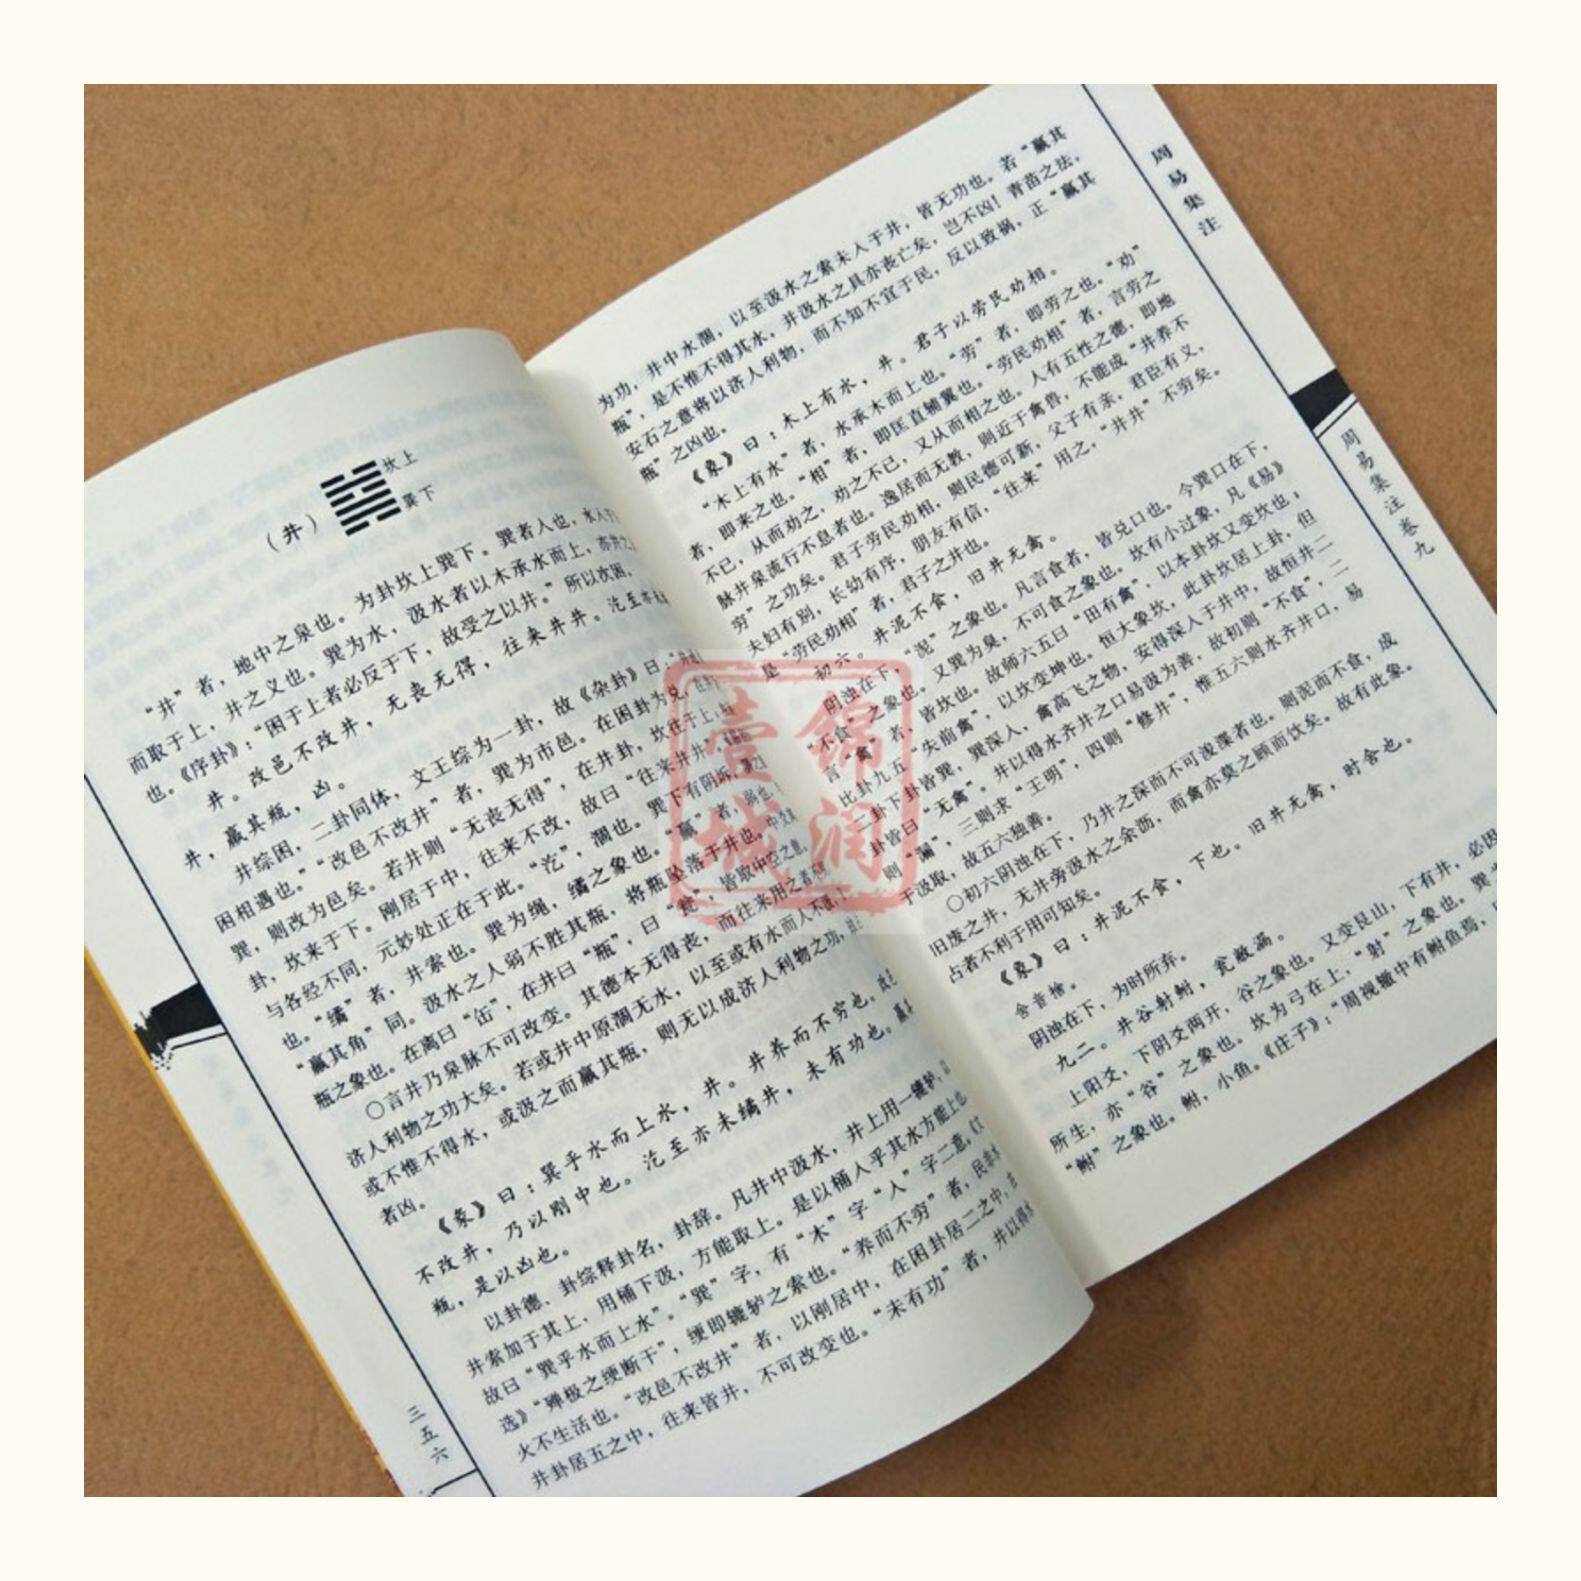 （井）
坎上
巽下
“井”者，地中之泉也。为卦坎上巽下。巽者入也，水入于
而取于上，井之义也。巽为水，汲水者以木承水而上，亦井之
也。《序卦》：“困于上者必反于下，故受之以井。”所以次困。
井。改邑不改井，无丧无得，往来井井。汔至亦未
井，羸其瓶，凶。
井综困，二卦同体，文王综为一卦，故《杂卦》曰：
困相遇也。“改邑不改井”者，巽为市邑。在困卦为兑，在井
巽，则改为邑矣。若井则“无丧无得”，在井卦，坎往于上；
卦，坎来于下。刚居于中，往来不改，故曰“往来井井”
与各经不同，元妙处正在于此。“汔”，涸也。巽下有阴坼，
也。“繘”者，井索也。巽为绳，繘之象也。“羸”者，弱也，
“羸其角”同。汲水之人弱不胜其瓶，将瓶坠落于井也。中
瓶之象也。在离曰“缶”，在井曰“瓶”，曰“瓮”，皆取中空之意。
〇言井乃泉脉不可改变。其德本无得丧，而往来用之者
济人利物之功大矣。若或井中原涸无水，以至或有水而人不
或不惟不得水，或汲之而羸其瓶，则无以成济人利物之功，
者凶。
《彖》曰：巽乎水而上水，井。井养而不穷也。改
不改井，乃以刚中也。汔至亦未繘井，未有功也。羸其
瓶，是以凶也。
以卦德、卦综释卦名，卦辞。凡井中汲水，井上用一辘轳，
井索加于其上，用桶下汲，方能取上。是以桶入乎其水方能上也，
故曰“巽乎水而上水”。“巽”字，有“木”字“入”字二意。《文
选》“殚极之绠断干”，绠即辘轳之索也。“养而不穷”者，民非水
火不生活也。“改邑不改井”者，以刚居中，在困卦居二之中，
井卦居五之中，往来皆井，不可改变也。“未有功”者，井以得水
三五六
为功，井中水涸，以至汲水之索未入于井，皆无功也。若“羸其
瓶”，是不惟不得其水，并汲水之具亦丧亡矣，岂不凶！青苗之法，
安石之意将以济人利物，而不知不宜于民，反以致祸，正“羸其
瓶”之凶也。
《象》曰：木上有水，井。君子以劳民劝相。
“木上有水”者，水承木而上也。“劳”者，即劳之也。“劝”
者，即来之也。“相”者，即匡直辅翼也。“劳民劝相”者，言劳之
不已，从而劝之，劝之不已，又从而相之也。人有五性之德，即地
脉井泉流行不息者也。逸居而无教，则近于禽兽，不能成“井养不
穷”之功矣。君子劳民劝相，则民德可新，父子有亲，君臣有义，
夫妇有别，长幼有序，朋友有信，“往来”用之，“井井”不穷矣。
是“劳民劝相”者，君子之井也。
初六。井泥不食，旧井无禽。
阴浊在下，“泥”之象也。凡言食者，皆兑口也。今巽口在下，
“不食”之象也。又巽为臭，不可食之象也。坎有小过象，凡《易》
言“禽”者，皆坎也。故师六五曰“田有禽”，以本卦坎又变坎也；
比卦九五“失前禽”，以坎变坤也。恒大象坎，此卦坎居上卦，但
二卦下卦皆巽，巽深入，禽高飞之物，安得深入于井中，故恒井二
卦皆曰“无禽”。井以得水齐井之口易汲为善，故初则“不食”，二
则“漏”，三则求“王明”，四则“修井”，惟五六则水齐井口，易
于汲取，故五六独善。
〇初六阴浊在下，乃井之深而不可浚渫者也。则泥而不食，成
旧废之井，无井旁汲水之余沥，而禽亦莫之顾而饮矣。故有此象。
占者不利于用可知矣。
《象》曰：井泥不食，下也。旧井无禽，时舍也。
舍音捨。
阴浊在下，为时所弃。
九二。井谷射鲋，瓮敝漏。
上阳爻，下阴爻两开，谷之象也。又变艮山，下有井，必因
所生，亦“谷”之象也。坎为弓在上，“射”之象也。巽
“鲋”之象也。鲋，小鱼。《庄子》：“周视辙中有鲋鱼焉，
周易集注
周易集注卷九
锦润
壹城